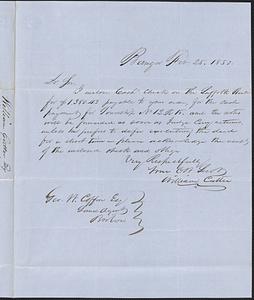 Bangor Feb 25. 1850.
Dr Sir
I enclose Cash Check on the Suffolk Bank
for $1380.43 payable to your order, for the cash
payment for Township No 12 R and the notes
will be forwarded as soon as Judge returns,
unless you prefer to defer executing the deed
for a short time. please acknowledge the receipt
of the enclosed check and oblige
Very Respectfully
Your Ob Servt
William Cutter
Geo. W. Coffin Esq
Land Agent
Boston